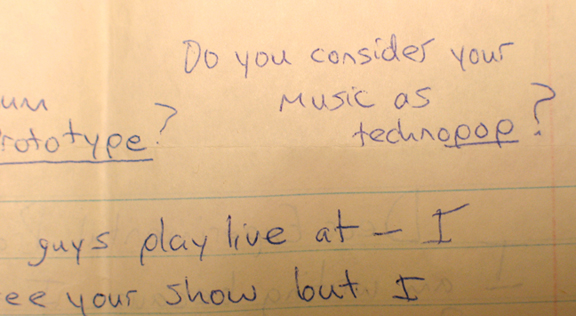 Do you consider your
music as
technopop?
um
rototype?
guys play live at - I
ee your show but I